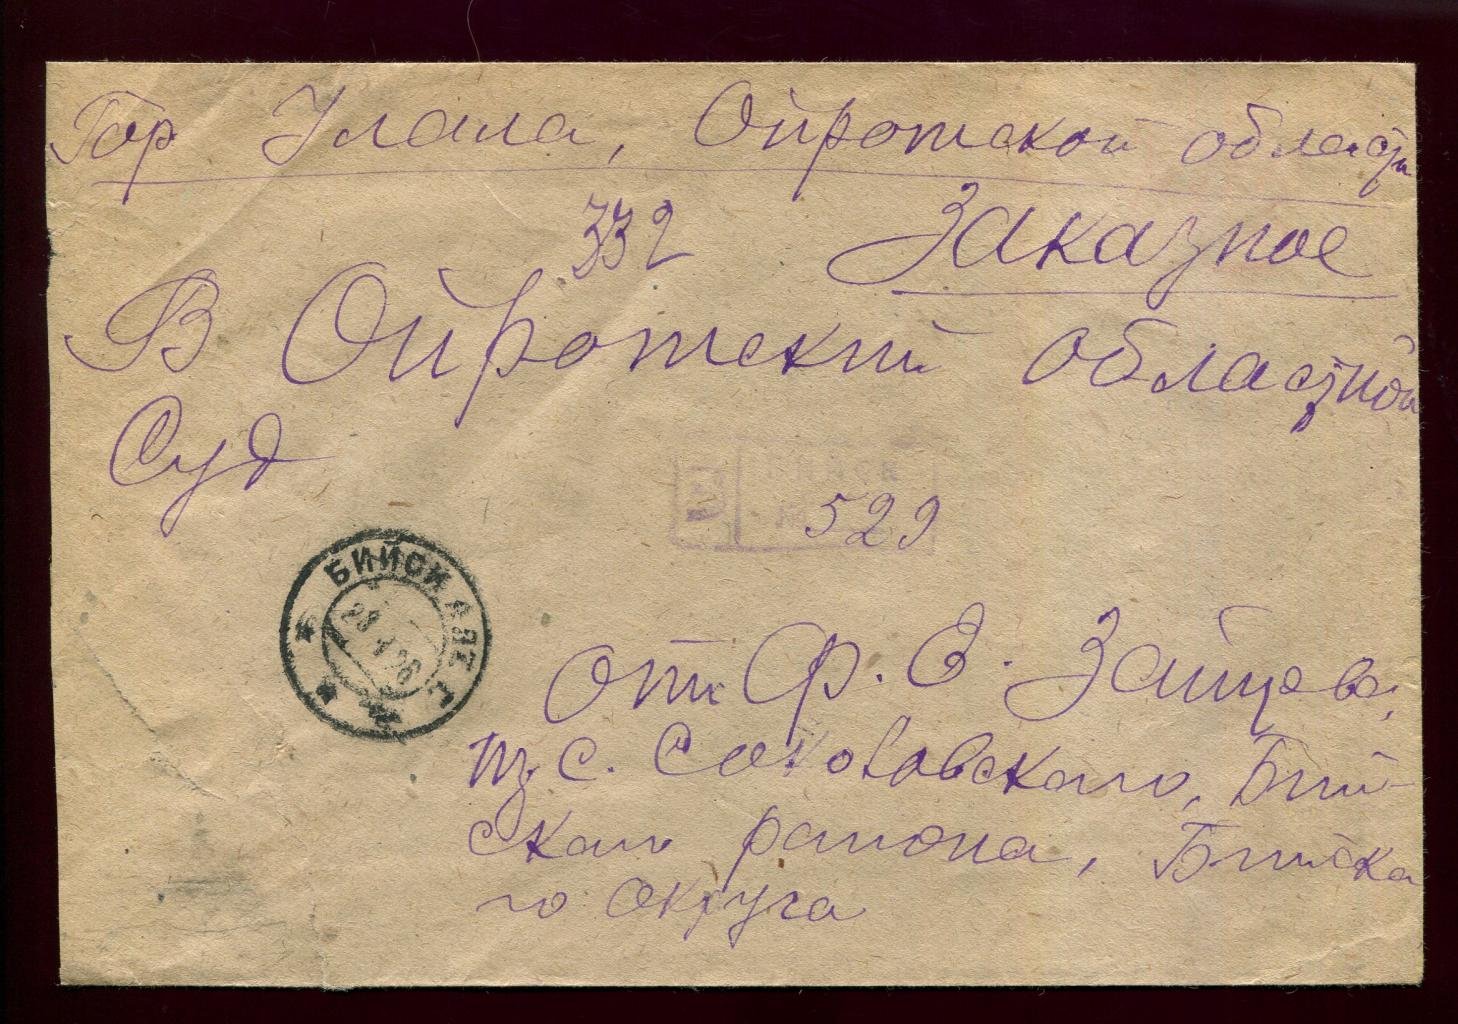 Гор Улала, Ойротской области
332 Заказное
В Ойротский областной
Суд
БИЙСК
529
БИЙСК АЛТ. Г.
от Ф. Е. Зайцева,
из с. Соколовского, Бий-
ского района, Бийско
го округа